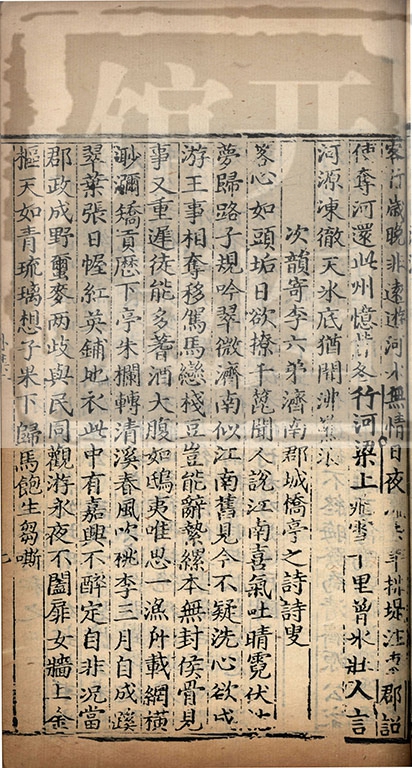 客行歲晚非遠遊河水無情日夜年排堤注東郡詔
使奪河還此州憶昔冬行河梁上飛雪千里曾冰壯人言
河源凍徹天冰底猶聞沸驚浪
次韻寄李六弟濟南郡城橋亭之詩詩叟
客心如頭垢日欲撩千篦聞人說江南喜氣吐晴霓伏
夢歸路子規吟翠微濟南似江南舊見今不疑洗心欲成
游王事相奪移駑馬戀棧豆豈能辭縶縲本無封侯骨見
事又重遲徒能多著酒大腹如鴟夷唯思一漁舟載網橫
渺瀰矯貢歷下亭朱欄轉清溪春風吹桃李三月自成蹊
翠葉張日幄紅英鋪地衣此中有嘉興不醉定自非况當
郡政成野壟麥兩歧與民同觀游永夜不闔扉女牆上金
樞天如青琉璃想子果下歸馬飽生芻嘶